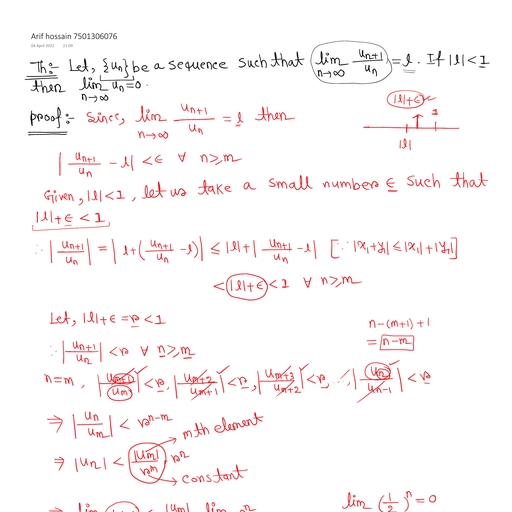 Arif hossain 7501306076
04 April 2022 21:09
Th:- Let, {un} be a sequence such that lim n→∞ un+1/un = l. If |l|<1
then lim n→∞ un=0.
proof:- Since, lim n→∞ un+1/un = l then
|l|+ε
1
|l|
|un+1/un - l| <ε ∀ n≥m
Given, |l|<1, let us take a small number ε such that
|l|+ε<1
∴ |un+1/un| = |l+(un+1/un - l)| ≤ |l|+|un+1/un - l| [∵ |x1+y1|≤|x1|+|y1|]
< |l|+ε <1 ∀ n≥m
Let, |l|+ε=r<1
n-(m+1)+1
= n-m
∴ |un+1/un| <r ∀ n≥m
n=m, |um+1/um|<r, |um+2/um+1|<r, |um+3/um+2|<r, ..., |un/un-1|<r
⇒ |un/um| < r^n-m
mth element
⇒ |un| < |um|/r^m . r^n
constant
lim (1/2)^n = 0